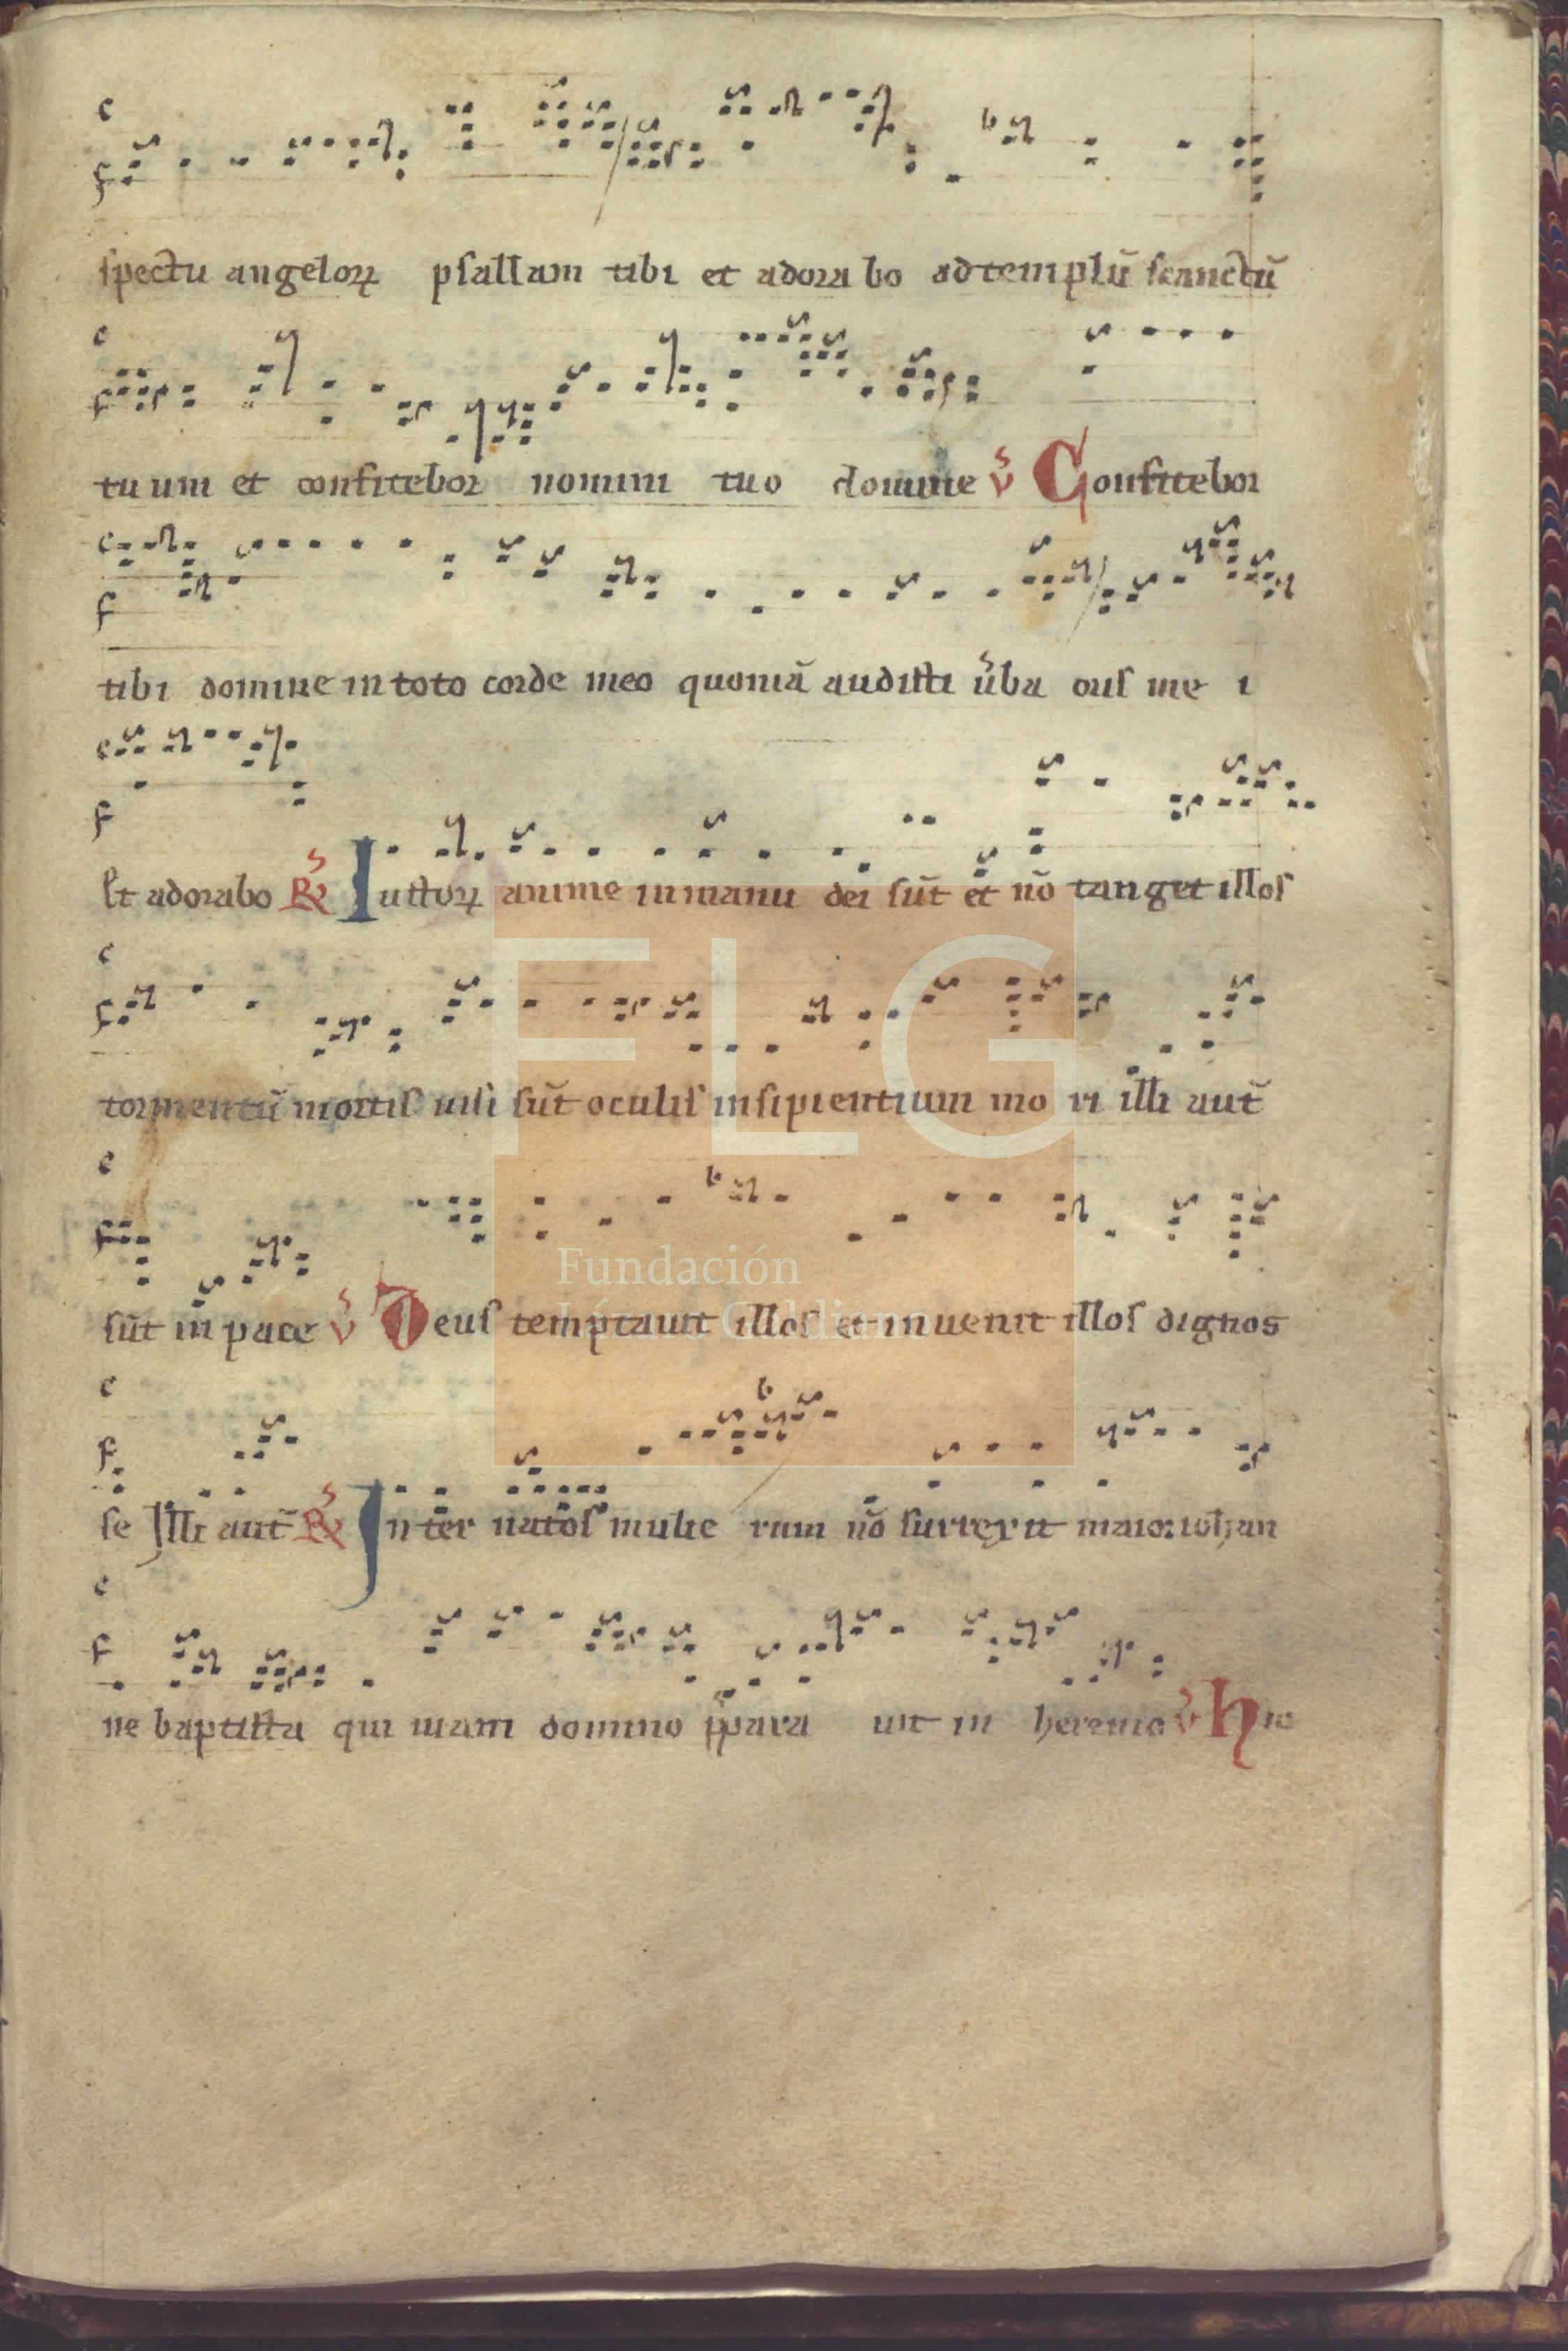 spectu angeloꝝ psallam tibi et adora bo ad templū sanctū
tu um et confitebor nomini tuo domine v̕ Confitebor
tibi domine in toto corde meo quoniā audisti u̕ba oris me i
Et adorabo R̕ Iustoꝝ anime in manu dei sūt et nō tanget illos
tormentū mortis uisi sūt oculis insipientium mo ri illi aut̄
sūt in pace v̕ Deus temptauit illos et inuenit illos dignos
se Illi aut̄ R̕ Inter natos mulie rum nō surrexit maior iohan
ne baptista qui uiam domino p̄para uit in heremo v̕ hic
FLG
Fundación
Lázaro Galdiano